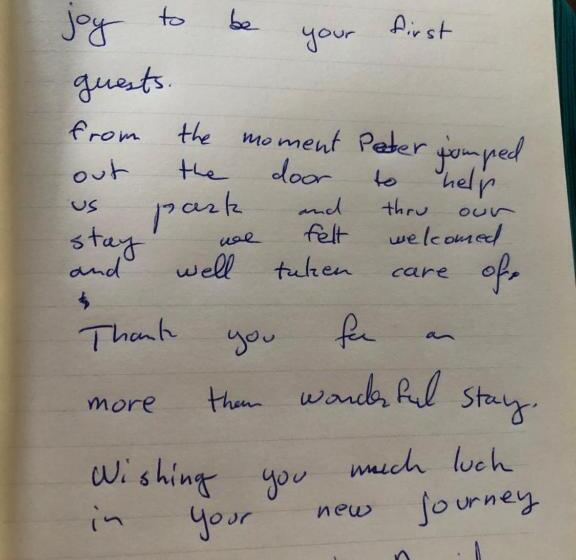 joy to be your first
guests.
From the moment Peter jumped
out the door to help
us park and thru our
stay we felt welcomed
and well taken care of.
Thank you for an
more than wonderful stay.
Wishing you much luck
in your new journey